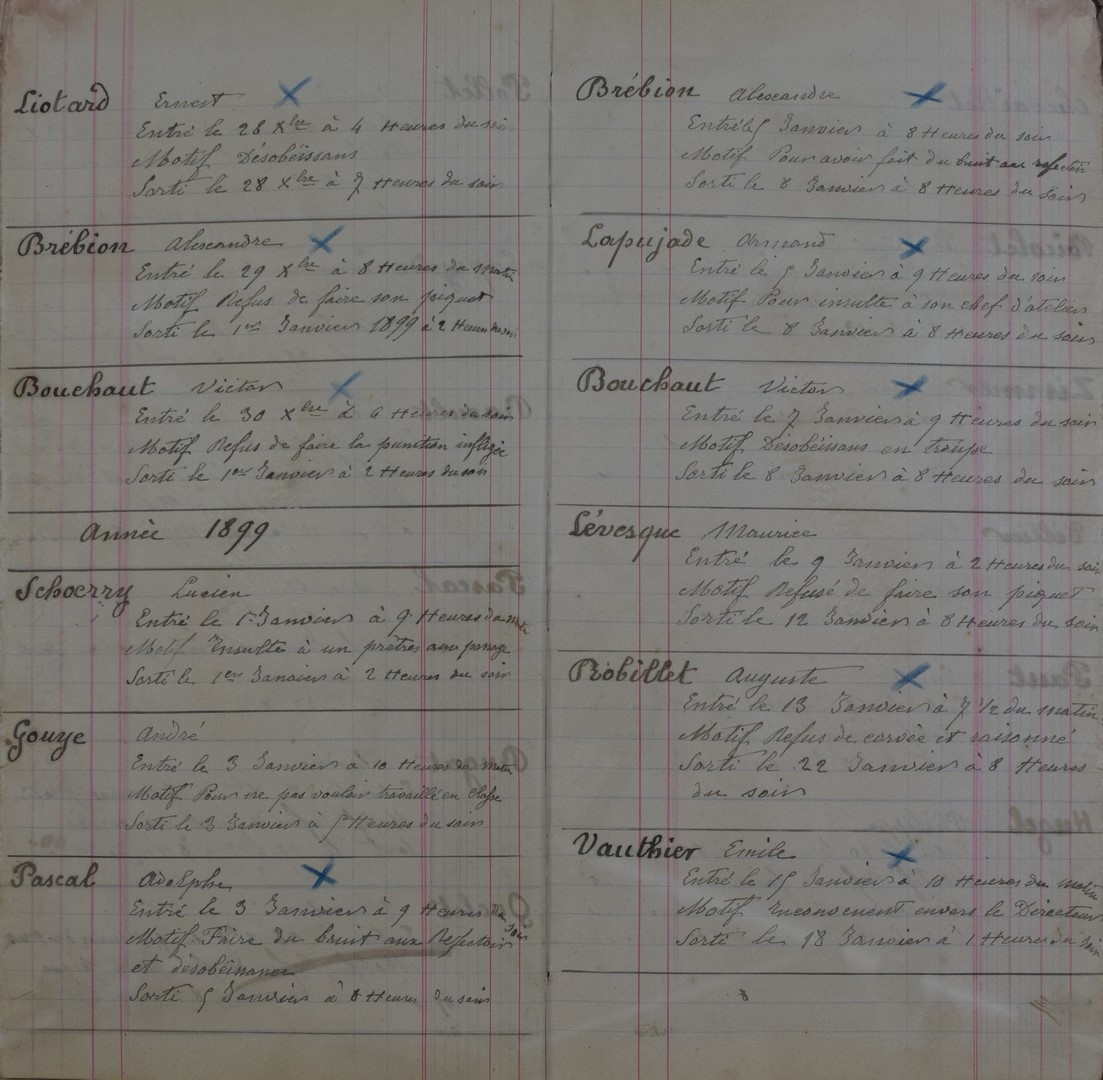 Liotard Ernest
Entré le 28 Xbre à 4 Heures du soir
Motif Désobéissans
Sorti le 28 Xbre à 7 Heures du soir
Brébion Alexandre
Entré le 29 Xbre à 8 Heures du matin
Motif Refus de faire son piquet
Sorti le 1er Janvier 1899 à 2 Heures du soir
Bouchaut Victor
Entré le 30 Xbre à 6 Heures du soir
Motif Refus de faire la punition infligée
Sorti le 1er Janvier à 2 Heures du soir
Année 1899
Schoerry Lucien
Entré le 1er Janvier à 9 Heures du matin
Motif Insulte à un prêtres au passage
Sorti le 1er Janvier à 2 Heures du soir
Gouye André
Entré le 3 Janvier à 10 Heures du matin
Motif Pour ne pas vouloir travaillé en classe
Sorti le 3 Janvier à 5 Heures du soir
Pascal Adolphe
Entré le 3 Janvier à 9 Heures du soir
Motif Faire du bruit aux Refectoir
et désobéissance
Sorti 5 Janvier à 8 Heures du soir
Brébion Alexandre
Entré le 5 Janvier à 8 Heures du soir
Motif Pour avoir fait du bruit au refectoir
Sorti le 8 Janvier à 8 Heures du soir
Lapujade Armand
Entré le 5 Janvier à 9 Heures du soir
Motif Pour insulte à son chef d'atelier
Sorti le 8 Janvier à 8 Heures du soir
Bouchaut Victor
Entré le 7 Janvier à 9 Heures du soir
Motif Désobéissans en troupe
Sorti le 8 Janvier à 8 Heures du soir
Lévesque Maurice
Entré le 9 Janvier à 2 Heures du soir
Motif Refusé de faire son piquet
Sorti le 12 Janvier à 8 Heures du soir
Robillet Auguste
Entré le 13 Janvier à 7 1/2 du matin
Motif Refus de corvée et raisonné
Sorti le 22 Janvier à 8 Heures
du soir
Vauthier Emile
Entré le 15 Janvier à 10 Heures du matin
Motif Inconvenent envers le Directeur
Sorti le 18 Janvier à 1 Heures du soir